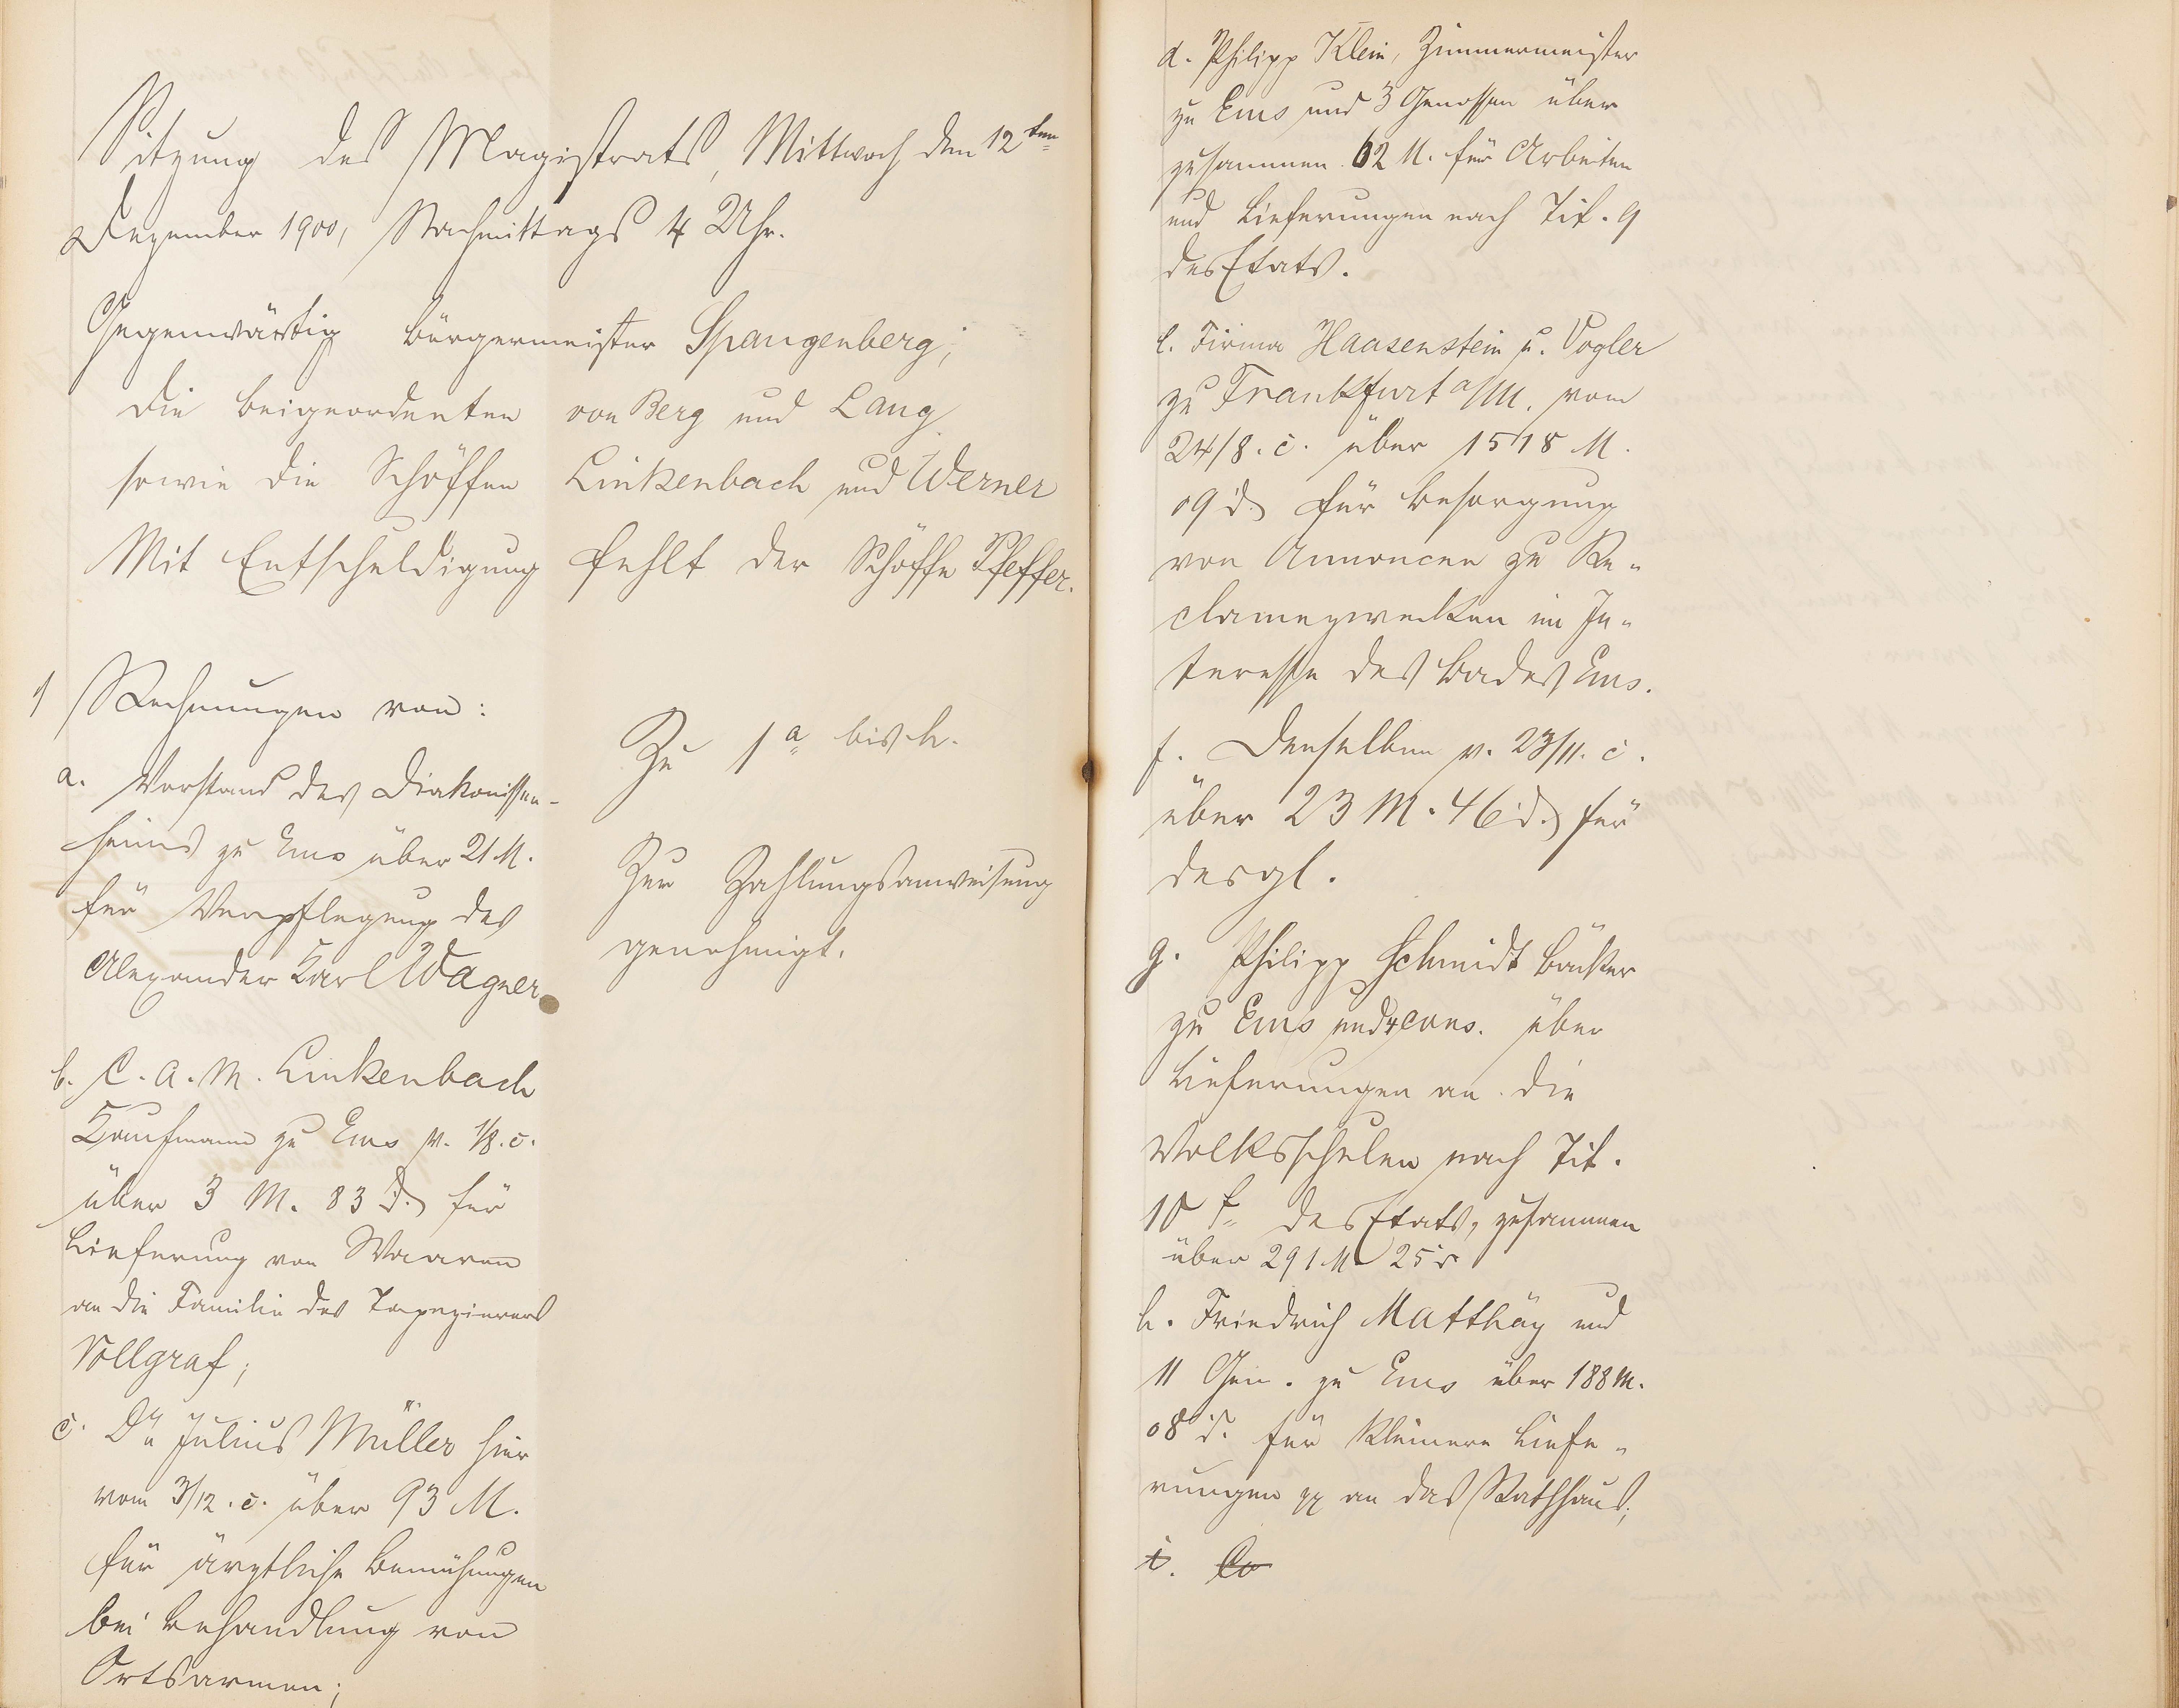 Sitzung des Magistrats, Mittwoch den 12ten
Dezember 1900, Nachmittags 4 Uhr.
Gegenwärtig Bürgermeister Spangenberg;
die Beigeordneten von Berg und Lang
sowie die Schöffen Linkenbach und Werner
Mit Entschuldigung fehlt der Schöffe Pfeffer.
1 Rechnungen von:
a. Vorstand des Diakonissen-
heims zu Ems über 21 M.
für Verpflegung des
Alexander Karl Wagner.
b. C. A. M. Linkenbach
Kaufmann zu Ems v. 1/8. c.
über 3 M. 83 d. für
Lieferung von Waaren
an die Familie des Tapezierers
Vollgraf;
c. Dr. Julius Müller hier
vom 3/12. c. über 93 M.
für ärztliche Bemühungen
bei Behandlung von
Ortsarmen;
Zu 1 a bis h.
Zur Zahlungsanweisung
genehmigt.
d. Philipp Klein, Zimmermeister
zu Ems und 3 Genossen über
zusammen 62 M. für Arbeiten
und Lieferungen nach Tit. 9
des Etats.
e. Firma Haasenstein u. Vogler
zu Frankfurt a/M. vom
24/8. c. über 1518 M.
09 d. für Besorgung
von Annoncen zu Re-
clamezwecken im In-
teresse des Bades Ems.
f. Denselben v. 23/11. c.
über 23 M. 46 d. für
desgl.
g. Philipp Schmidt Bäcker
zu Ems und 4 Cons. über
Lieferungen an die
Volksschulen nach Tit.
10 f. des Etats, zusammen
über 291 M 25 d
h. Friedrich Matthäy und
11 Gen. zu Ems über 188 M.
08 d. für kleinere Liefe-
rungen pp an das Rathhaus;
i.